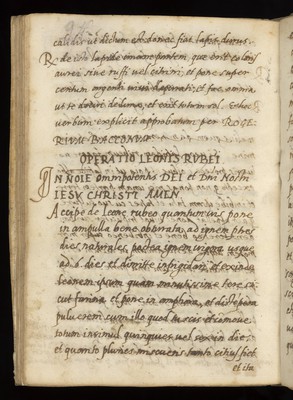 calidis ut dictum est donec fiat lapis durus.
Rc de isto lapide unam partem, que erit coloris
aurei sive ruffi vel citrini, et pone super
centum argenti vivi et fac omnia
ut te docui de luna, et erit totum sol. Et hoc
verbum explicit approbatum per ROGE
RIUM BACCONUM
OPERATIO LEONIS RUBEI
IN NOIE omnipotentis DEI et Dni Nostri
IESV CHRISTI AMEN
Accipe de Leone rubeo quantum vis pone
in ampulla bene obporata, ad ignem
dies naturales, postea ignem usque
ad 6. dies et dimitte infrigidari, et
leonem ipsum quam minutissime tere sicut
farina et pone in amphora, et
pulverem cum illo quod
totum insimul quinquies vel sex in dies
et quanto plures tanto citius fiet
et ita